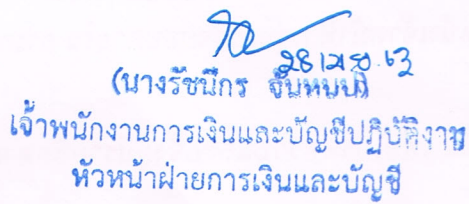 28 เมย. 63
(นางรัชนีกร จันทบป)
เจ้าพนักงานการเงินและบัญชีปฏิบัติงาน
หัวหน้าฝ่ายการเงินและบัญชี